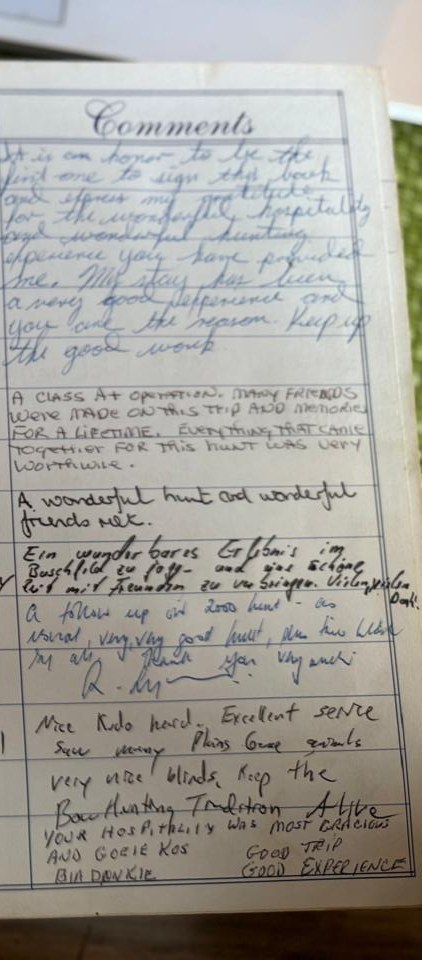 Comments
It is an honor to be the
first one to sign this book
and express my gratitude
for the wonderful hospitality
and wonderful hunting
experience you have provided
me. My stay has been
a very good experience and
you are the reason. Keep up
the good work.
A CLASS A+ OPERATION. MANY FRIENDS
WERE MADE ON THIS TRIP AND MEMORIES
FOR A LIFETIME. EVERYTHING THAT CAME
TOGETHER FOR THIS HUNT WAS VERY
WORTHWILE.
A wonderful hunt and wonderful
friends met.
Ein wunderbares Erlebnis im
Buschfeld zu und eine schöne
Zeit mit Freunden zu verbringen. Vielen, vielen
Dank!
A follow up on 2000 hunt - as
usual, very, very good hunt,
Thank you very much
Nice Kudo herd. Excellent service
Saw many Plains Game animals
very nice blinds, Keep the
BowHunting Tradition Alive
YOUR HOSPITALITY WAS MOST GRACIOUS
AND GOEIE KOS GOOD TRIP
BIA DANKIE GOOD EXPERIENCE